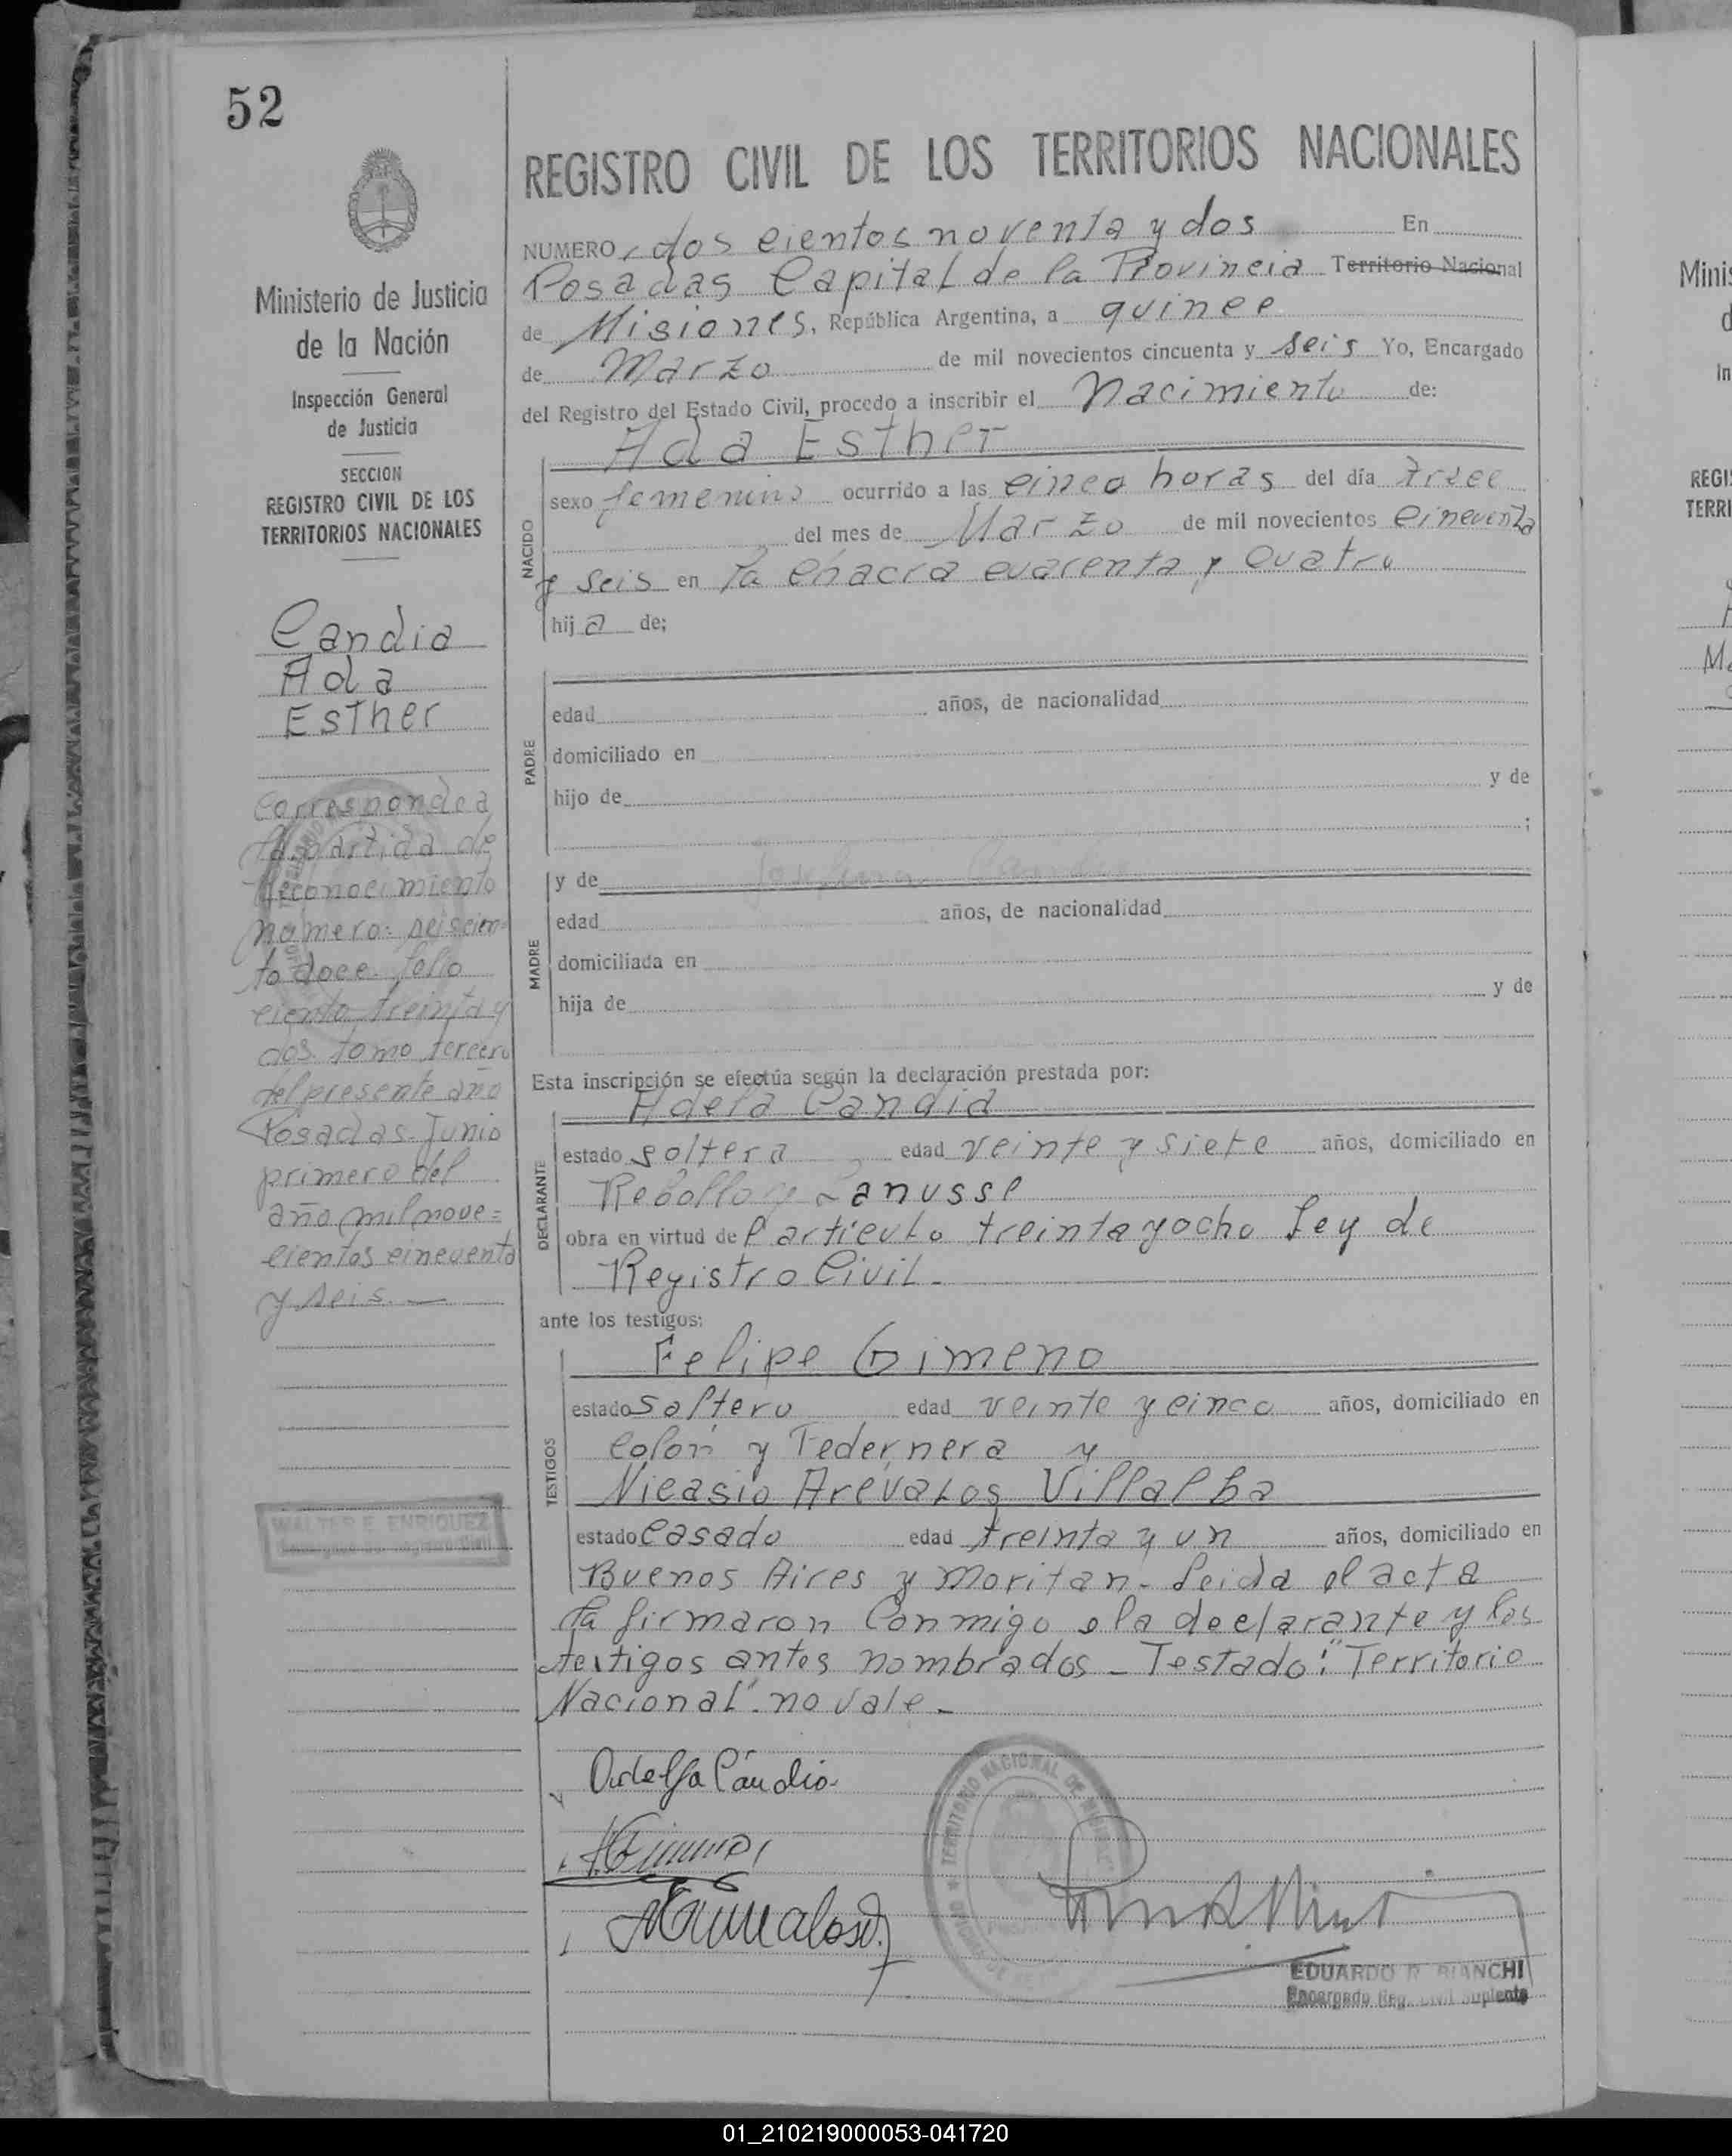 52
REGISTRO CIVIL DE LOS TERRITORIOS NACIONALES
NUMERO, dos cientos noventa y dos En
Posadas Capital de la Provincia Territorio Nacional
de Misiones, República Argentina, a quince
de Marzo de mil novecientos cincuenta y seis Yo, Encargado
del Registro del Estado Civil, procedo a inscribir el Nacimiento de:
Ada Esther
NACIDO
sexo femenino ocurrido a las cinco horas del día trece
del mes de Marzo de mil novecientos cincuenta
y seis en la chacra cuarenta y cuatro
hija de;
PADRE
edad años, de nacionalidad
domiciliado en
hijo de y de
;
MADRE
y de
edad años, de nacionalidad
domiciliada en
hija de y de
Esta inscripción se efectúa según la declaración prestada por:
DECLARANTE
Adela Candia
estado soltera edad veinte y siete años, domiciliado en
Rebollo y Lanusse
obra en virtud del articulo treinta y ocho Ley de
Registro Civil.
ante los testigos:
TESTIGOS
Felipe Gimeno
estado soltero edad veinte y cinco años, domiciliado en
Colón y Tedernera y
Nicasio Arévalos Villalba
estado casado edad treinta y un años, domiciliado en
Buenos Aires y Moritan. Leida el acta
la firmaron conmigo la declarante y los
testigos antes nombrados - Testado: "Territorio
Nacional". no vale -
Adelfa Candia
EDUARDO R. BIANCHI
Encargado Reg. Civil Suplente
Ministerio de Justicia
de la Nación
Inspección General
de Justicia
SECCION
REGISTRO CIVIL DE LOS
TERRITORIOS NACIONALES
Candia
Ada
Esther
Corresponde a
la partida de
Reconocimiento
número: seiscien=
to doce. folio
ciento treinta y
dos. tomo tercero
del presente año
Posadas. Junio
primero del
año mil nove=
cientos cincuenta
y seis. —
WALTER E. ENRIQUEZ
Encargado del Registro Civil
01_210219000053-041720